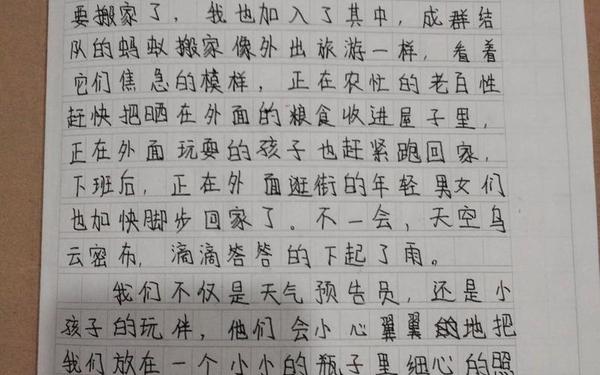 要搬家了，我也加入了其中，成群结
队的蚂蚁搬家像外出旅游一样，看着
它们焦急的模样，正在农忙的老百性
赶快把晒在外面的粮食收进屋子里，
正在外面玩耍的孩子也赶紧跑回家，
下班后，正在外面逛街的年轻男女们
也加快脚步回家了。不一会，天空乌
云密布，滴滴答答的下起了雨。
我们不仅是天气预告员，还是小
孩子的玩伴，他们会小心翼翼地把
我们放在一个小小的瓶子里细心的照